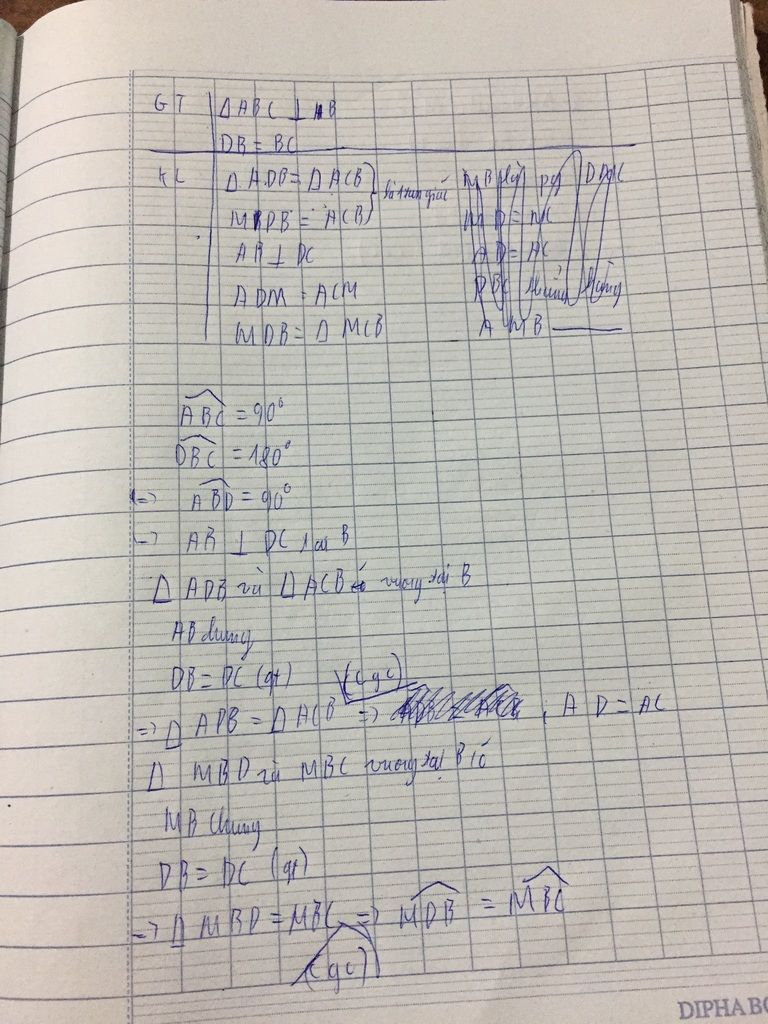 GT ΔABC ⊥ B
DB = BC
KL ΔADB = ΔACB
MDB = ACB
AB ⊥ DC
ADM = ACM
MDB = Δ MCB
MD = MC
AD = AC
DBC thẳng hàng
AMB
ABC = 90°
DBC = 180°
=> ABD = 90°
=> AB ⊥ DC tại B
Δ ADB và ΔACB có vuông tại B
AB chung
DB = DC (gt) (cgc)
=> Δ ADB = ΔACB => , AD = AC
Δ MBD và MBC vuông tại B có
MB chung
DB = DC (gt)
=> Δ MBD = MBC => MDB = MBC
(cgc)
DIPHABO